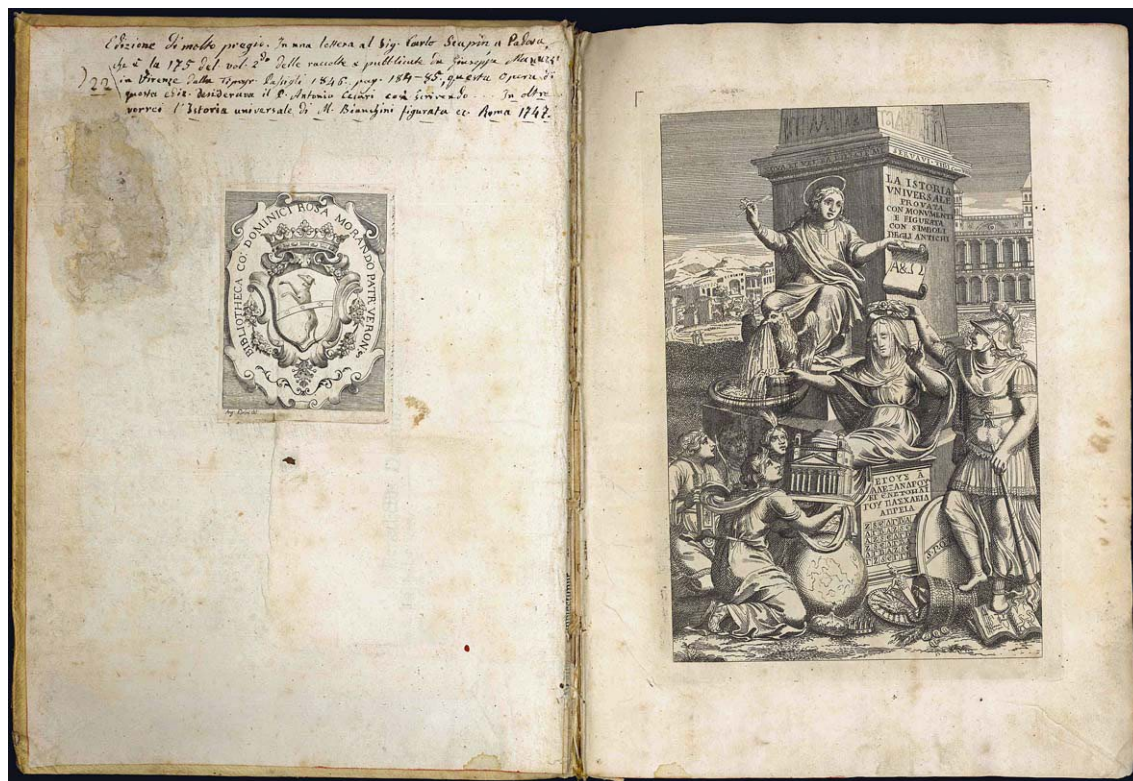 Edizione di molto pregio. In una lettera al Sig. Carlo Scapin a Padova,
che è la 175 del vol. 2do delle raccolte e pubblicate da Giuseppe Manuzzi
in Firenze dalla Tipogr. Passigli 1845. pag. 184-85. questa Opera di
questa ediz. desiderava il P. Antonio Cesari così scrivendo ... In oltre
vorrei l'Istoria universale di M. Bianchini figurata ec. Roma 1747.
22
BIBLIOTHECA CO. DOMINICI ROSA MORANDO PATR. VERON.
LA ISTORIA
VNIVERSALE
PROVATA
CON MONVMENTI
E FIGVRATA
CON SIMBOLI
DEGLI ANTICHI
A & Ω
ΕΤΟΥΣ Α
ΑΛΕΞΑΝΔΡΟΥ
ΓΟΥ ΠΑΣΧΑΕΙΑ
ΑΠΡΕΙΑ